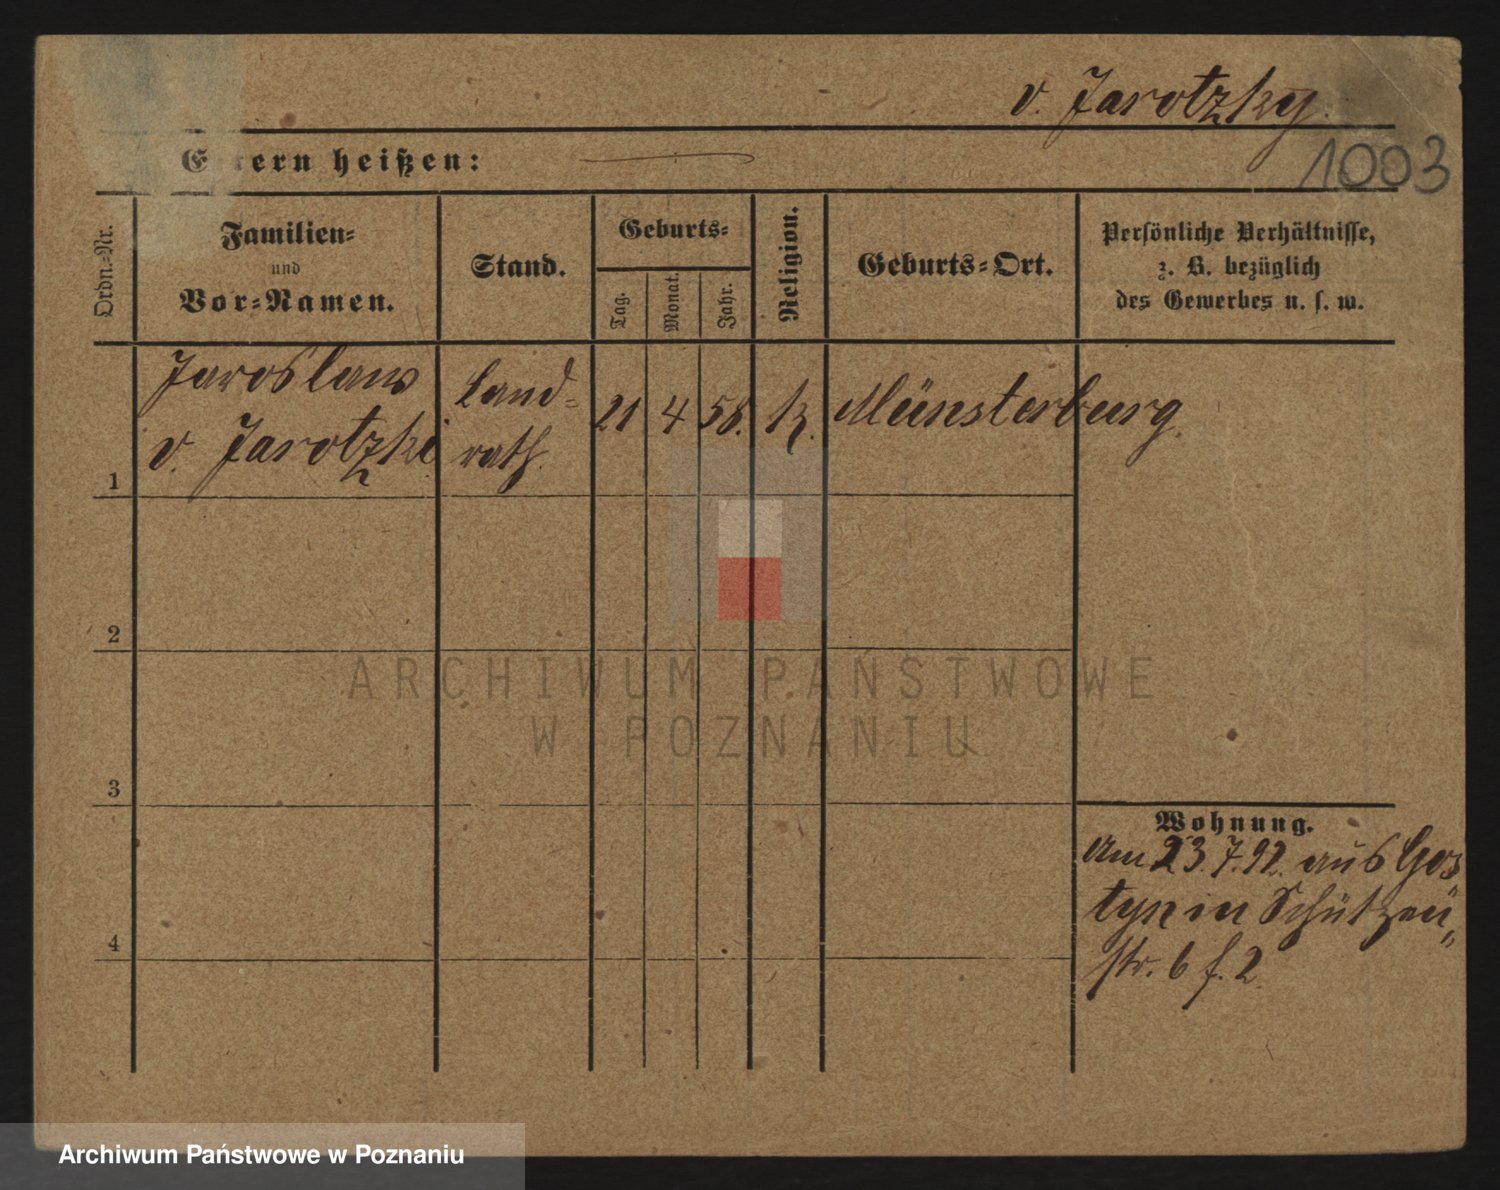 v. Jarotzky.
1003
Eltern heißen:
Ordn.-Nr.
Familien-
und
Vor-Namen.
Stand.
Geburts-
Tag.
Monat.
Jahr.
Religion.
Geburts-Ort.
Persönliche Verhältnisse,
z. B. bezüglich
des Gewerbes u. s. w.
1
Jaroslaw
v. Jarotzki
Land-
rath.
21
4
58.
k.
Münsterburg.
2
3
4
Wohnung.
Am 23.7.92. aus Gos
tyn in Schützen
str. 6 f. 2
ARCHIWUM PAŃSTWOWE
W POZNANIU
Archiwum Państwowe w Poznaniu